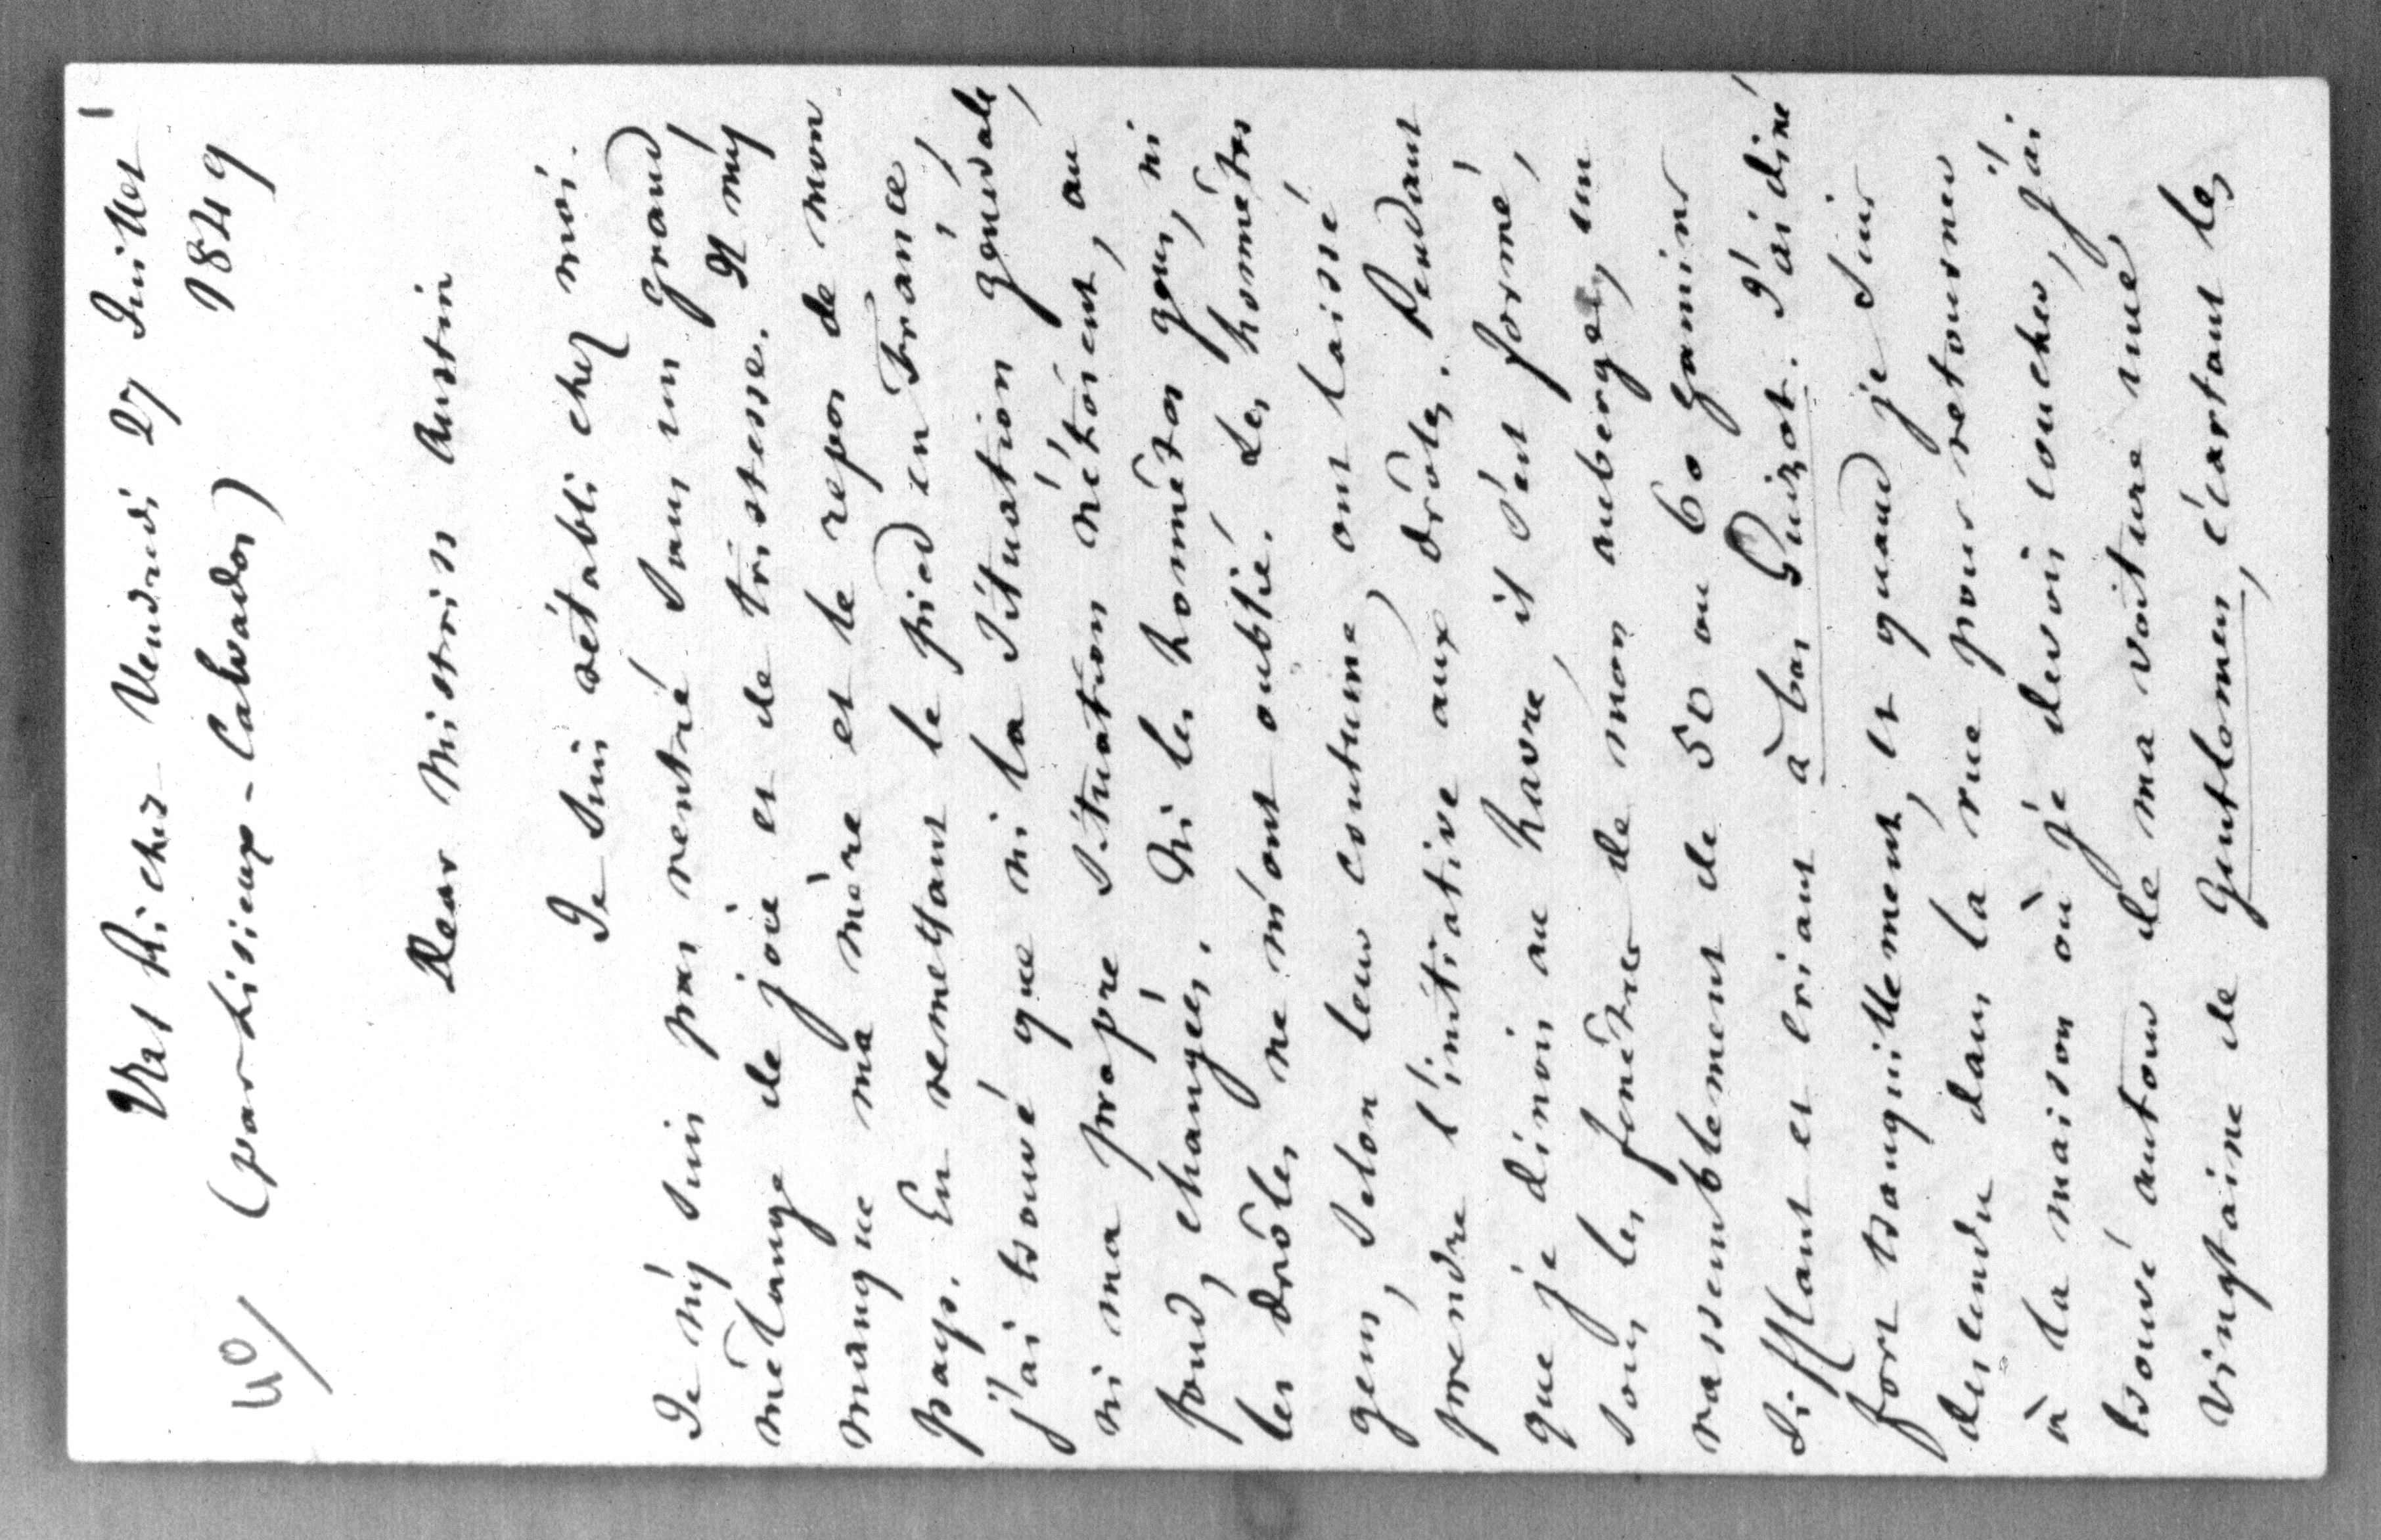 1
Val Richer Vendredi 27 Juillet
(par Lisieux - Calvados) 1849
40/
Dear Mistriss Austin
Je suis rétabli chez moi.
Je n'y suis pas rentré sans un grand
mélange de joie et de tristesse. Il m'y
manque ma mère et le repos de mon
pays. En remettant le pied en France,
j'ai trouvé que ni la situation générale,
ni ma propre situation n'étoient, au
fond, changées. Ni les honnêtes gens, ni
les drôles ne m'ont oublié. Les honnêtes
gens, selon leur coutume, ont laissé
prendre l'initiative aux drôles. Pendant
que je dinois au havre, il s'est formé,
sous les fenêtres de mon auberge, un
rassemblement de 50 ou 60 gamins
sifflant et criant à bas Guizot. J'ai diné
fort tranquillement, et quand je suis
descendu dans la rue pour retourner
à la maison où je devois coucher, j'ai
trouvé autour de ma voiture une
vingtaine de gentlemen, écartant les